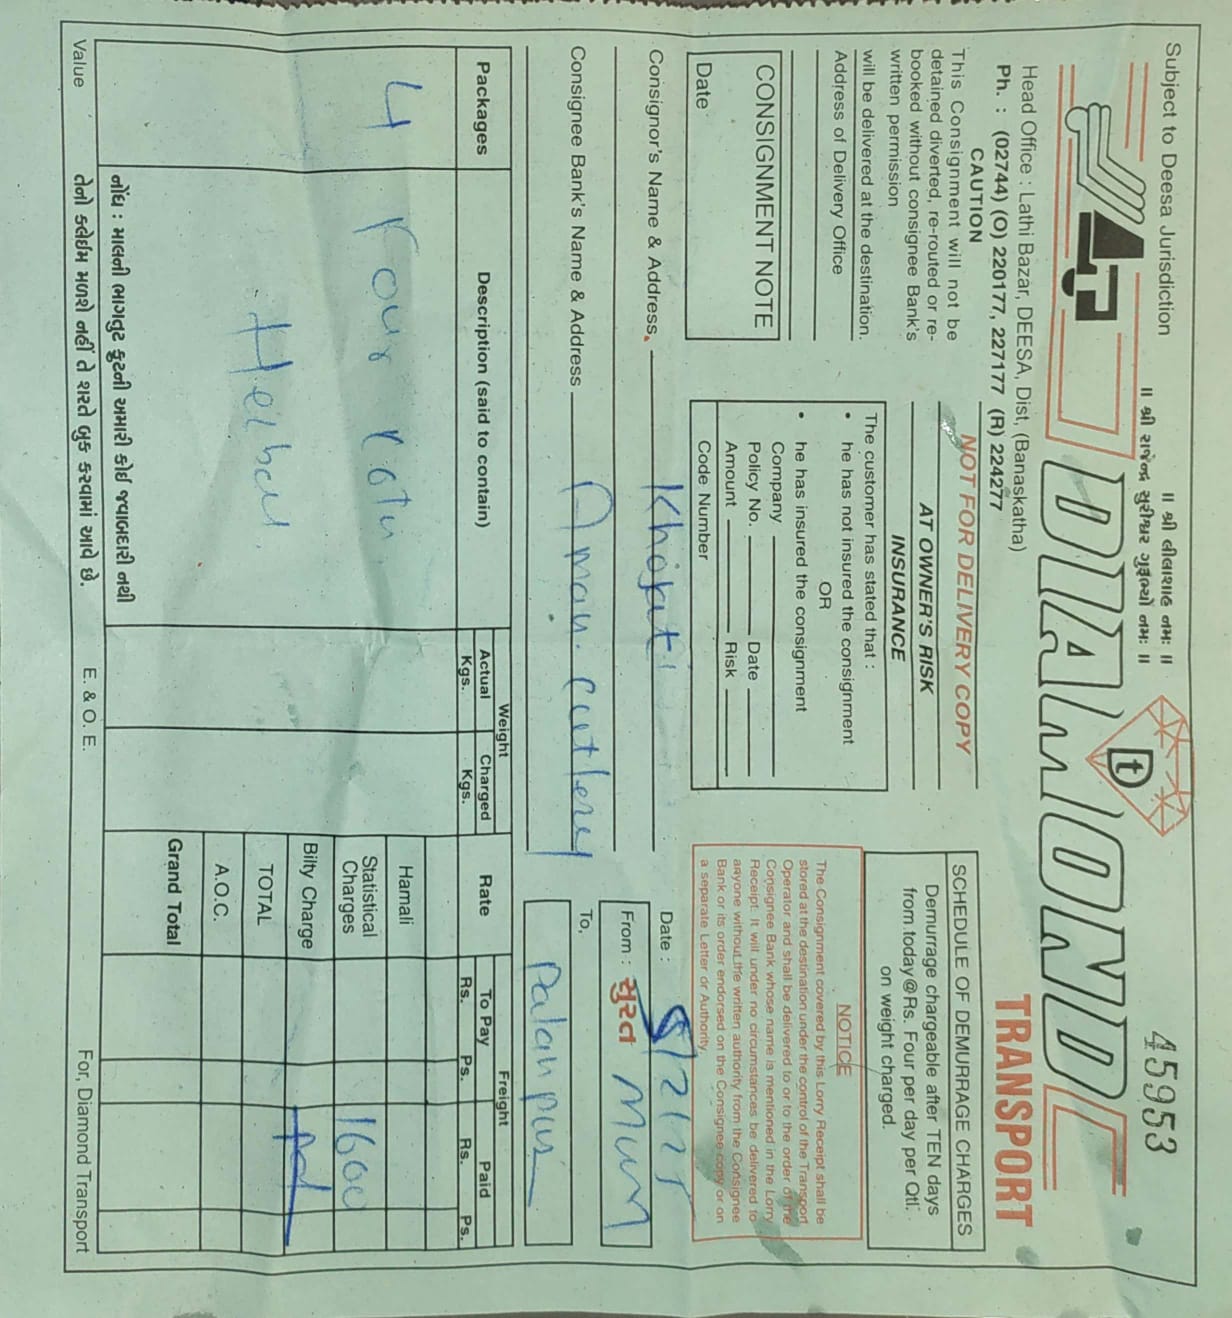 Subject to Deesa Jurisdiction
॥ શ્રી લીલાશાહ નમઃ ॥
॥ શ્રી રાજેન્દ્ર સુરીશ્વર ગુરૂભ્યો નમઃ ॥
45953
DIAMOND
t
TRANSPORT
Head Office : Lathi Bazar, DEESA, Dist, (Banaskatha)
Ph. : (02744) (O) 220177, 227177 (R) 224277
CAUTION
This Consignment will not be
detained diverted, re-routed or re-
booked without consignee Bank's
written permission
will be delivered at the destination.
Address of Delivery Office
CONSIGNMENT NOTE
Date
NOT FOR DELIVERY COPY
AT OWNER'S RISK
INSURANCE
The customer has stated that :
• he has not insured the consignment
OR
• he has insured the consignment
Company
Policy No. Date
Amount Risk
Code Number
SCHEDULE OF DEMURRAGE CHARGES
Demurrage chargeable after TEN days
from today@Rs. Four per day per Qtl.
on weight charged.
NOTICE
The Consignment covered by this Lorry Receipt shall be
stored at the destination under the control of the Transport
Operator and shall be delivered to or to the order of the
Consignee Bank whose name is mentioned in the Lorry
Receipt. It will under no circumstances be delivered to
anyone without the written authority from the Consignee
Bank or its order endorsed on the Consignee copy or on
a separate Letter or Authority.
Consignor's Name & Address. Khojati
Date :
From : સુરત Mum
Consignee Bank's Name & Address Amain. Cutlery
To, Palanpur
Packages Description (said to contain) Weight Rate Freight
Actual Kgs. Charged Kgs. To Pay Paid
Rs. Ps. Rs. Ps.
4 Four
Herbal
Hamali
Statistical Charges 1600
Bilty Charge Pd
TOTAL
A.O.C.
Grand Total
નોંધ : માલની ભાગતુટ ફુટની અમારી કોઈ જવાબદારી નથી
તેનો કલેઈમ મળશે નહીં તે શરતે બુક કરવામાં આવે છે.
Value
E. & O. E.
For, Diamond Transport